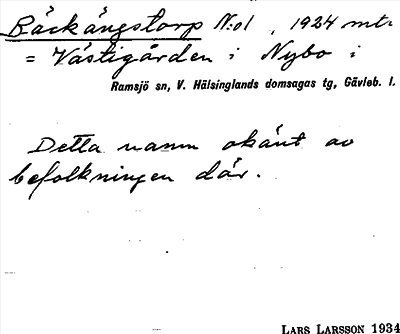 Bäckängstorp N:o1, 1924 mtr.
= Västigården i Nybo i
Ramsjö sn, V. Hälsinglands domsagas tg, Gävleb. l.
Detta namn okänt av
befolkningen där.
LARS LARSSON 1934